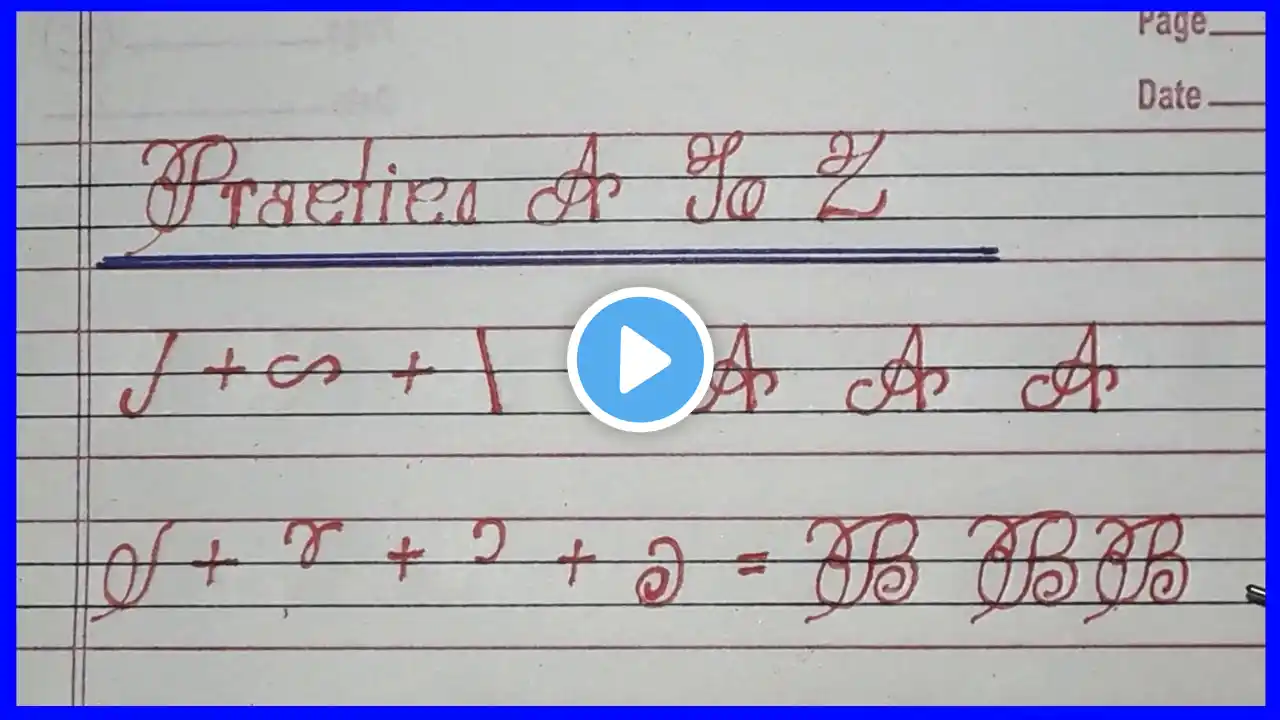 Page
Date
Practice A To Z
+ + A A A
+ + + = B B B